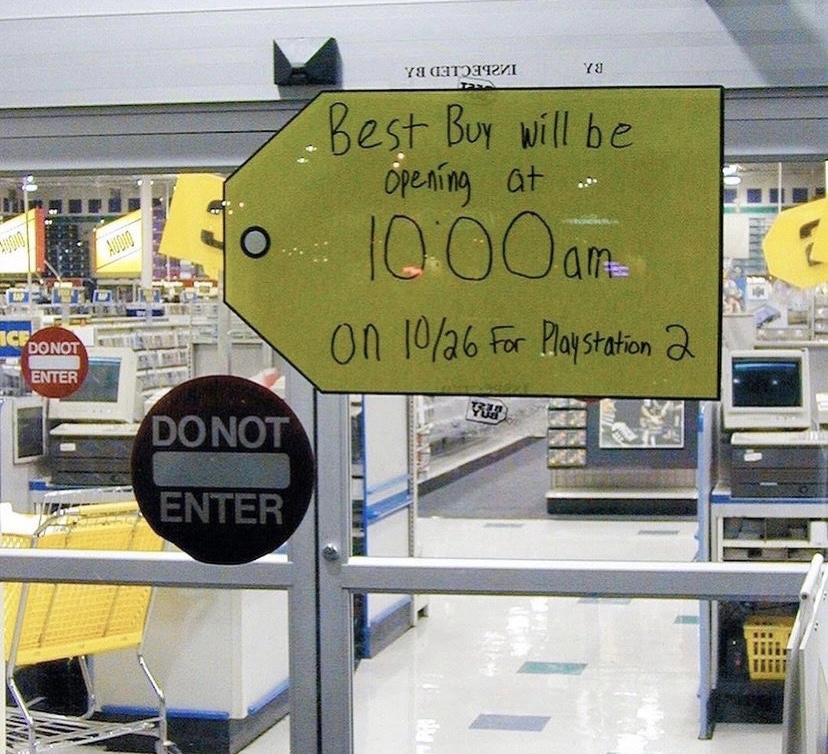 INSPECTED BY
BY
Best Buy will be
opening at
10:00am
on 10/26 For Playstation 2
AUDIO
AUDIO
DO NOT
ENTER
DO NOT
ENTER
BEST
BUY